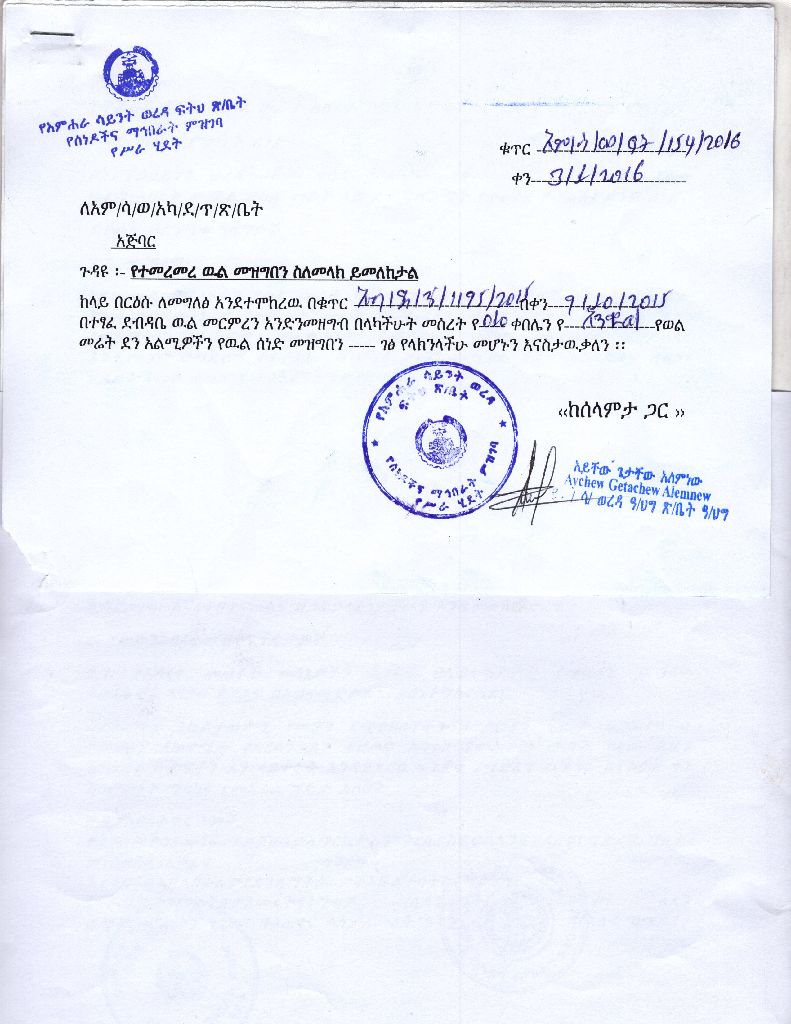 የአምሐራ ሳይንት ወረዳ ፍትህ ጽ/ቤት
የሰነዶችና ማኅበራት ምዝገባ
የሥራ ሂደት
ቁጥር 154/2016
ቀን 3/1/2016
ለአም/ሳ/ወ/አካ/ደ/ጥ/ጽ/ቤት
አጅባር
ጉዳዩ ፡- የተመረመረ ዉል መዝግበን ስለመላክ ይመለከታል
ከላይ በርዕሱ ለመግለፅ እንደተሞከረዉ በቁጥር /1195/2015 በቀን 9/10/2015
በተፃፈ ደብዳቤ ዉል መርምረን እንድንመዘግብ በላካችሁት መሰረት የ 010 ቀበሌን የ የወል
መሬት ደን አልሚዎችን የዉል ሰነድ መዝግበን ----- ገፅ የላክንላችሁ መሆኑን እናስታዉቃለን ፡፡
‹‹ከሰላምታ ጋር ››
የአምሐራ ሳይንት ወረዳ
ፍትህ ጽ/ቤት
የሰነዶችና ማኅበራት ምዝገባ
የሥራ ሂደት
አይቸው ጌታቸው አለምነው
Aychew Getachew Alemnew
ሳ/ ወረዳ ዓ/ህግ ጽ/ቤት ዓ/ህግ